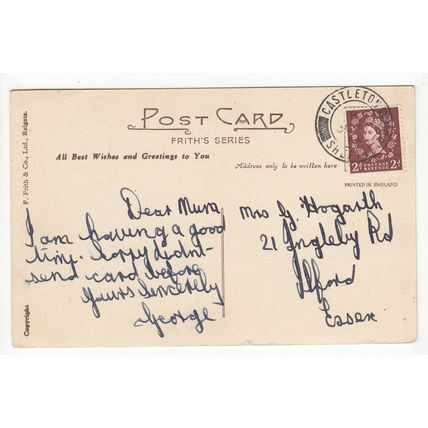 POST CARD
FRITH'S SERIES
All Best Wishes and Greetings to You
Address only to be written here
PRINTED IN ENGLAND
F. Frith & Co., Ltd., Reigate.
Copyright
CASTLETON
2D POSTAGE REVENUE 2D
Dear Mum
I am having a good
time. Sorry didnt
send card before
Yours Sincerely
George
Mrs G. Hogarth
21 Ingleby Rd
Ilford
Essex